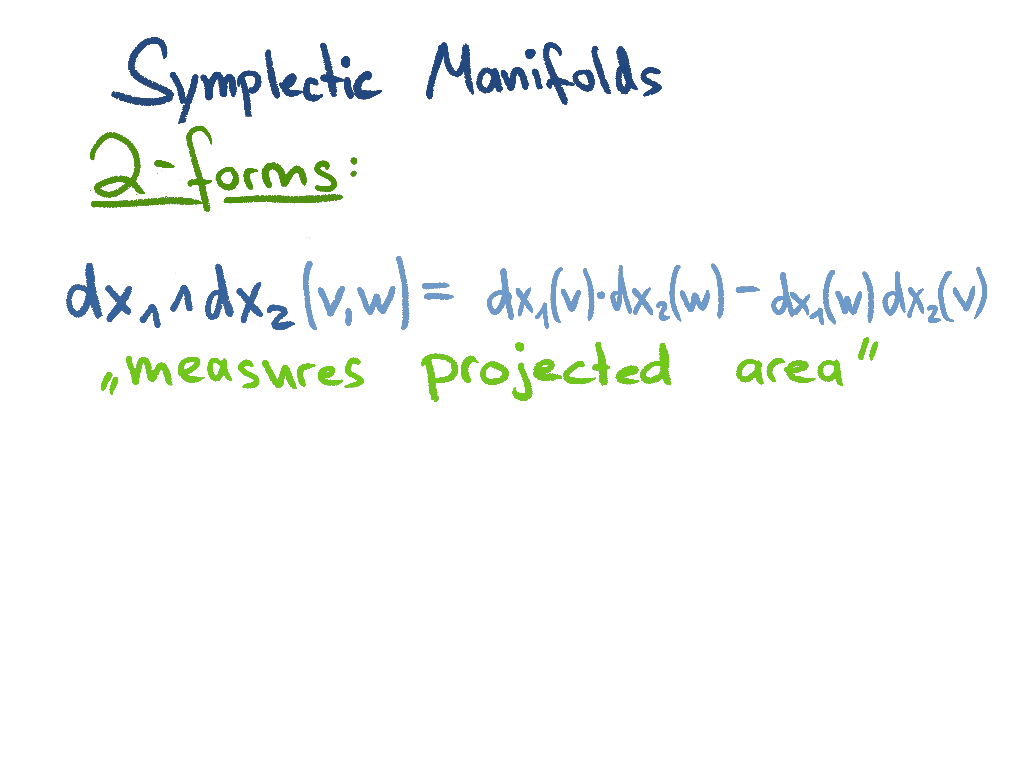 Symplectic Manifolds
2-forms:
dx₁∧dx₂(v,w) = dx₁(v)·dx₂(w) - dx₁(w)dx₂(v)
„measures projected area"